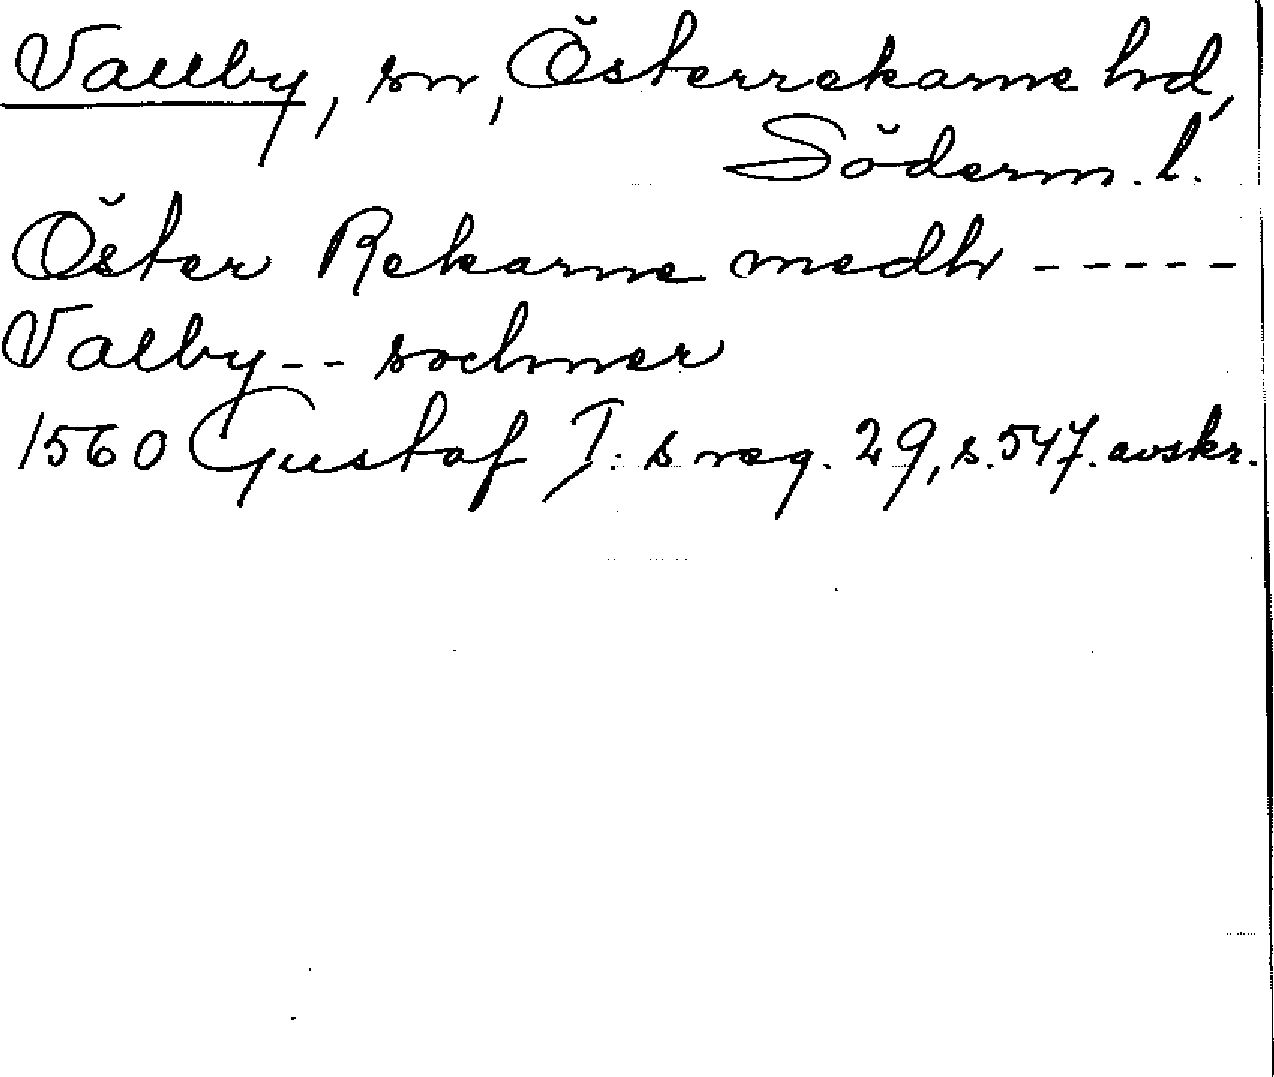 Vallby, sn, Österrekarne hd,
Söderm. l.
Öster Rekarne medh -----
Valby -- sochner
1560 Gustaf I:s reg. 29, s. 547. avskr.